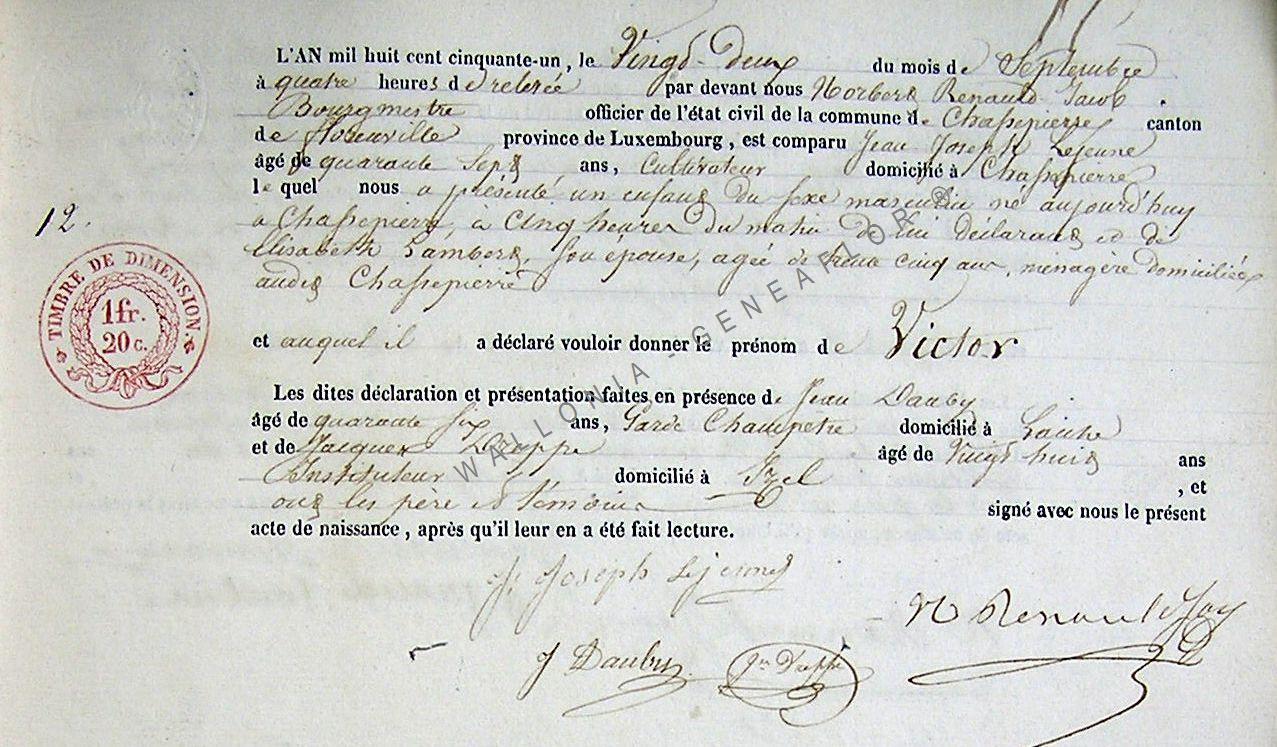 L'AN mil huit cent cinquante-un, le Vingt-deux du mois de Septembre
à quatre heures de relevée par devant nous Norbert Renauld-Jacob
Bourgmestre officier de l'état civil de la commune de Chassepierre canton
de Florenville province de Luxembourg, est comparu Jean Joseph Lejeune
âgé de quarante Sept ans, Cultivateur domicilié à Chassepierre
lequel nous a présenté un enfant du sexe masculin né aujourd'huy
a Chassepierre, a Cinq heures du matin de lui déclarant et de
Elisabeth Lambert, son épouse, agée de trente cinq ans, ménagère domiciliée
audit Chassepierre
12.
TIMBRE DE DIMENSION.
1fr.
20 c.
et auquel il a déclaré vouloir donner le prénom de Victor
Les dites déclaration et présentation faites en présence de Jean Dauby
âgé de quarante six ans, Garde Champetre domicilié à Laiche
et de Jacques âgé de Vingt huit ans
Instituteur domicilié à Izel , et
ont les père et témoins signé avec nous le présent
acte de naissance, après qu'il leur en a été fait lecture.
J. Joseph Lejeune
N Renauld Jac
J Dauby
WALLONIA - GENEAFLOR ®